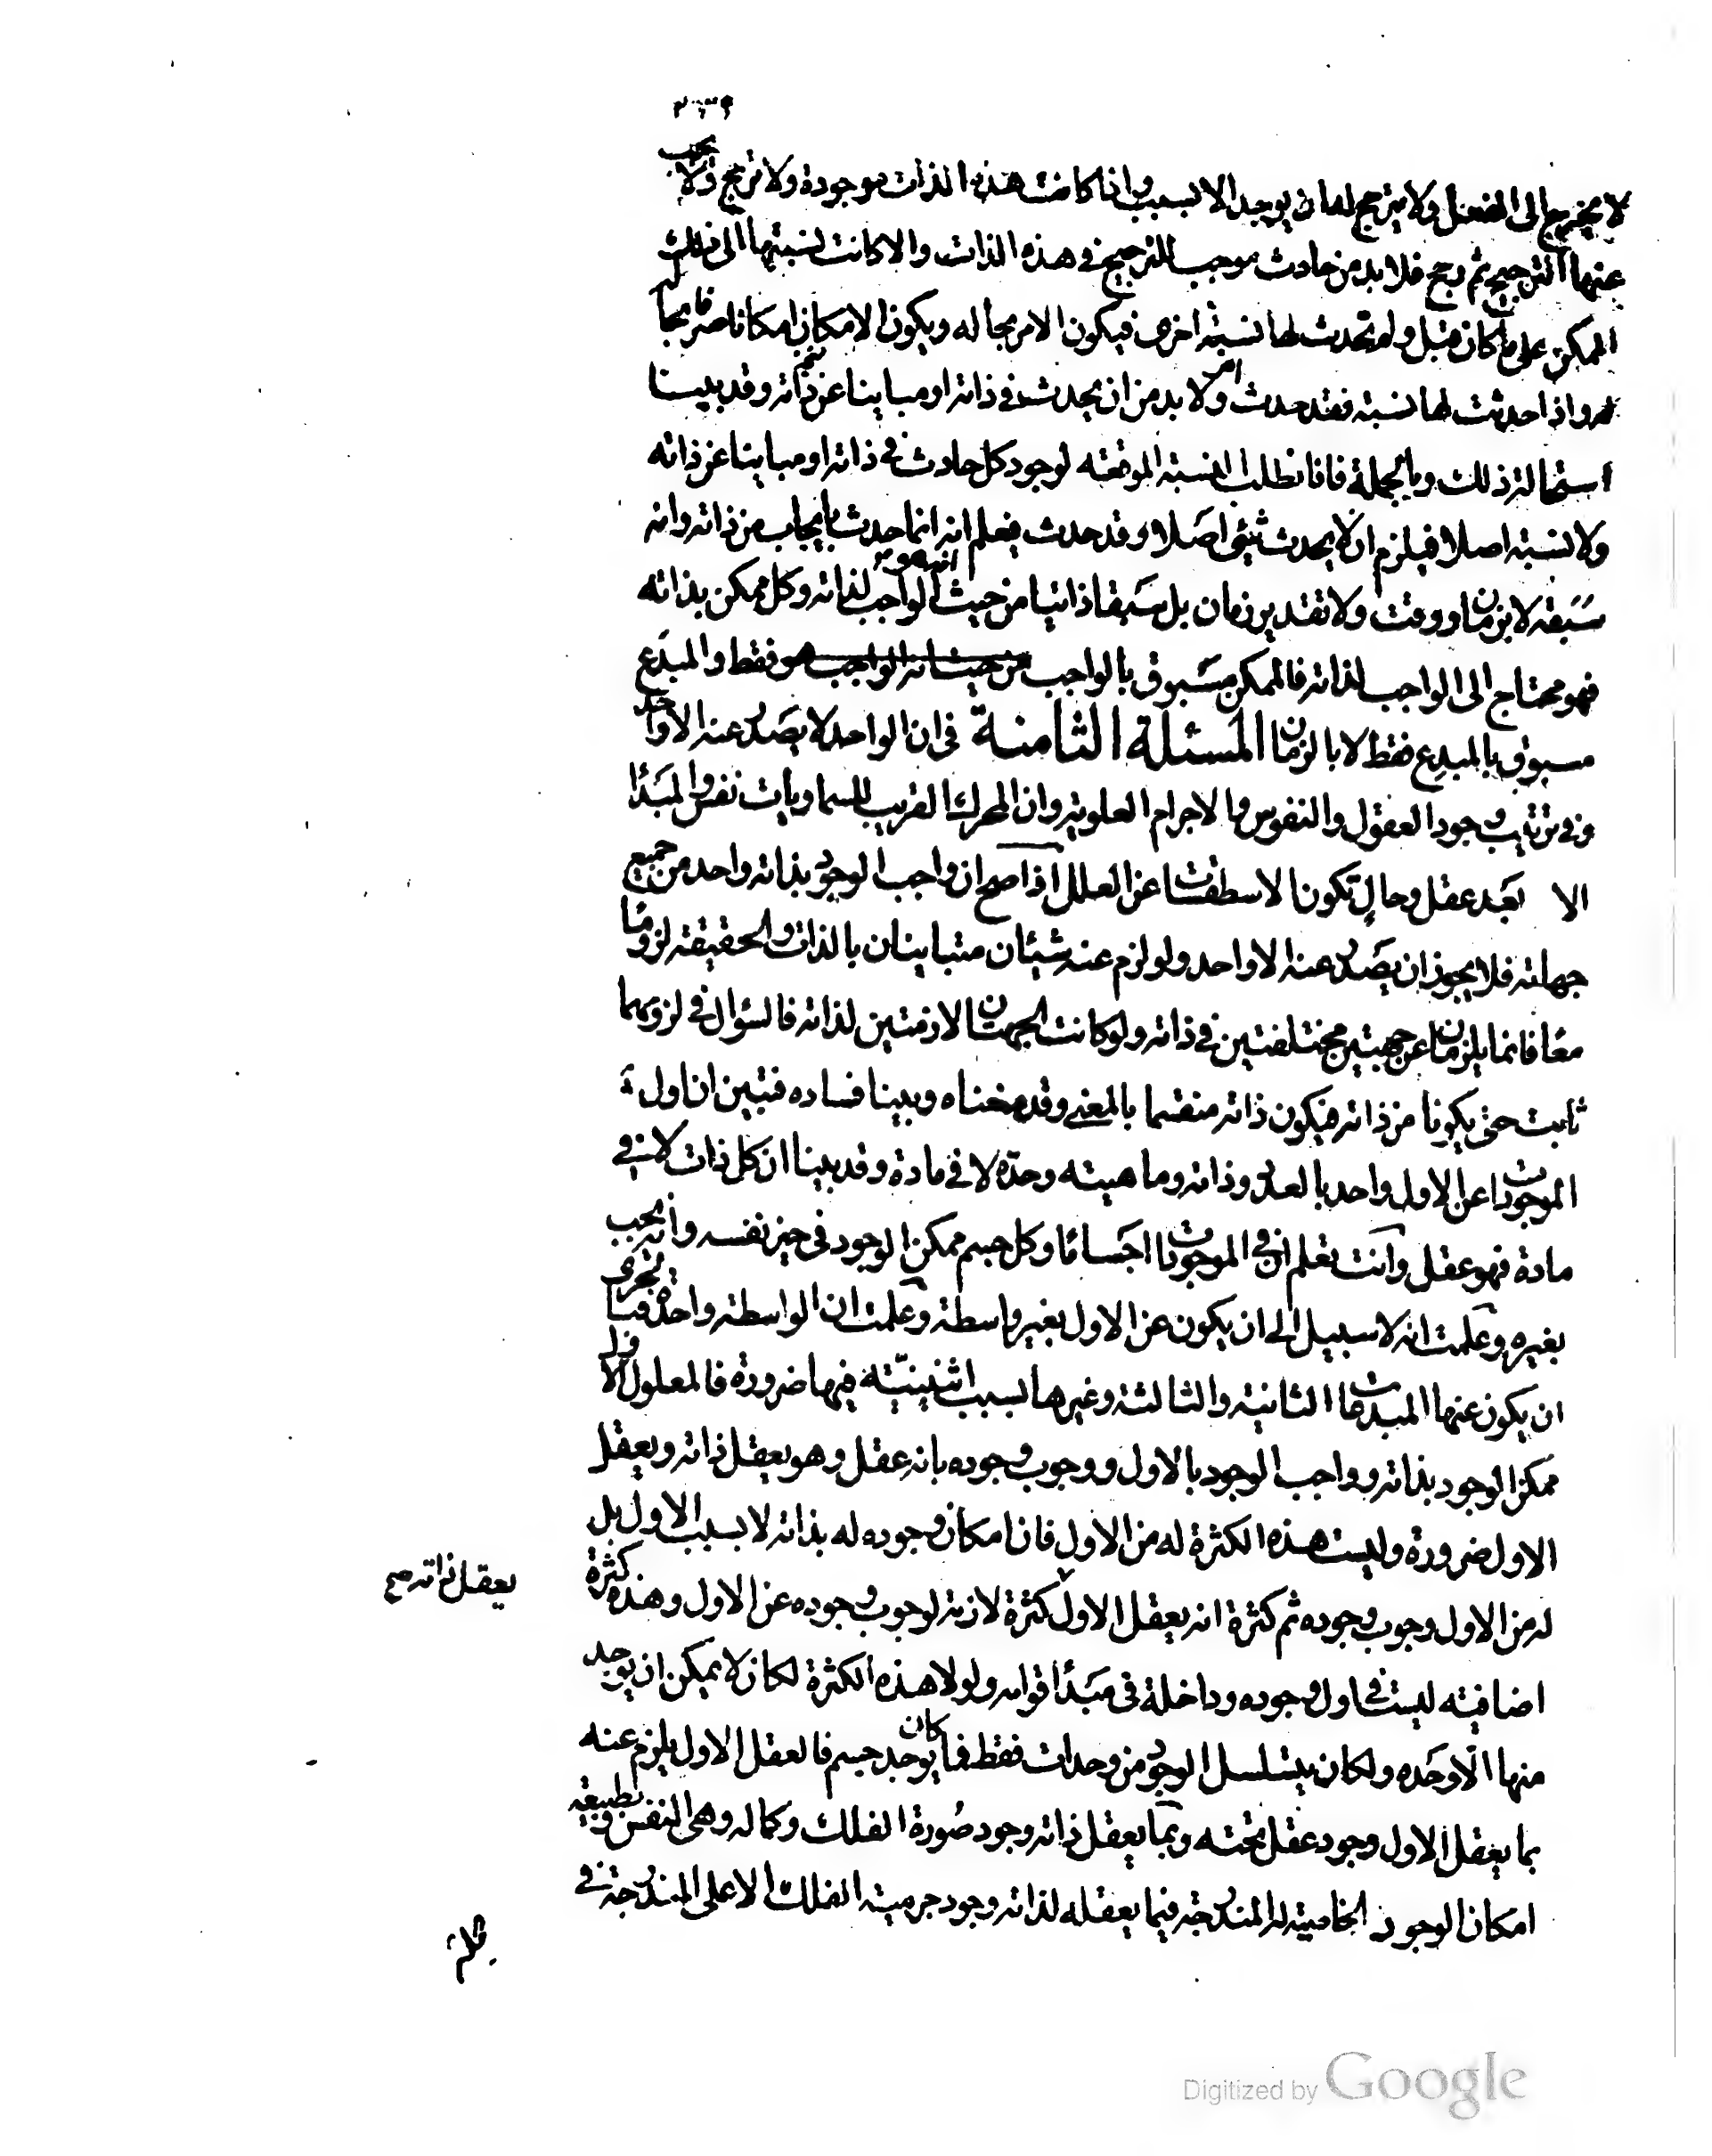 ٢٣٩
لا يخرج الى الفعل ولا يترجح لها ان يوجد الا بسبب واذا كانت هذه الذات موجودة ولا ترجح ولا يجب
عنها الترجيح ثم رجح فلا بد من حادث موجب للترجيح في هذه الذات والا كانت نسبتها الى ذلك
الممكن على ما كان قبل ولم تحدث لها نسبة اخرى فيكون الامر بحاله ويكون الامكان امكانا صرفا بحاله
واذا حدثت لها نسبة فقد حدث امر ولا بد من ان يحدث في ذاته او مباينا عن ذاته وقد بينا
استحالة ذلك وبالجملة فانا نطلب النسبة الموقعة لوجود كل حادث في ذاته او مباينا عن ذاته
ولا نسبة اصلا فيلزم ان لا يحدث شئ اصلا وقد حدث فعلم انه انما حدث بايجاب من ذاته وانه
سبقه لا بزمان او وقت ولا تقدير زمان بل سبقا ذاتيا من حيث انه هو الواجب لذاته وكل ممكن بذاته
فهو محتاج الى الواجب لذاته فالممكن مسبوق بالواجب من حيث انه الواجب هو فقط والمبدَع
مسبوق بالمبدِع فقط لا بالزمان المسئلة الثامنة في ان الواحد لا يصدر عنه الا واحد
وفي ترتيب وجود العقول والنفوس والاجرام العلوية وان المحرك القريب للسماويات نفس والمبدأ
الا بعد عقل وحال تكون الاسطقسات عن العلل اذا صح ان واجب الوجود بذاته واحد من جميع
جهاته فلا يجوز ان يصدر عنه الا واحد ولو لزم عنه شيئان متباينان بالذات والحقيقة لزوما
معا فانما يلزمان عن جهتين مختلفتين في ذاته ولو كانت الجهتان لازمتين لذاته فالسؤال في لزومهما
ثابت حتى يكونا من ذاته فيكون ذاته منقسما بالمعنى وقد منعناه وبينا فساده فتبين ان اول
الموجودات عن الاول واحد بالعدد وذاته وماهيته وحدة لا في مادة وقد بينا ان كل ذات لا في
مادة فهو عقل وانت تعلم ان في الموجودات اجساما وكل جسم ممكن الوجود في حيز نفسه وانه يجب
بغيره وعلمت انه لا سبيل الى ان يكون عن الاول بغير واسطة وعلمت ان الواسطة واحدة فبالحرى
ان يكون عنها المبدعات الثانية والثالثة وغيرها بسبب اثنينيّة فيها ضرورة فالمعلول الاول
ممكن الوجود بذاته وواجب الوجود بالاول ووجوب وجوده بانه عقل وهو يعقل ذاته ويعقل
الاول ضرورة وليست هذه الكثرة له من الاول فان امكان وجوده له بذاته لا بسبب الاول بل
له من الاول وجوب وجوده ثم كثرة انه يعقل الاول كثرة لازمة لوجوب وجوده عن الاول وهذه كثرة
يعقل ذاته صح
اضافية ليست في اول وجوده وداخلة في مبدأ قوامه ولولا هذه الكثرة لكان لا يمكن ان يوجد
منها الا وحده ولكان يتسلسل الوجود من وحدات فقط فما كان يوجد جسم فالعقل الاول يلزم عنه
بما يعقل الاول وجود عقل تحته وبما يعقل ذاته وجود صورة الفلك وكماله وهي النفس وبطبيعة
امكان الوجود الخاصية له المندرجة فيما يعقله لذاته وجود جرمية الفلك الاعلى المندرجة في
Digitized by Google